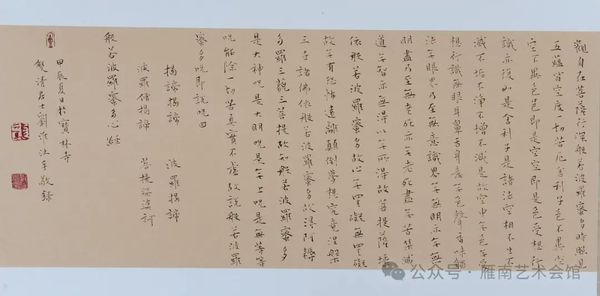 觀自在菩薩行深般若波羅蜜多時照見
五蘊皆空度一切苦厄舍利子色不異空
空不異色色即是空空即是色受想行
識亦復如是舍利子是諸法空相不生不
滅不垢不淨不增不減是故空中無色無受
想行識無眼耳鼻舌身意無色聲香味觸
法無眼界乃至無意識界無無明亦無無
明盡乃至無老死亦無老死盡無苦集滅
道無智亦無得以無所得故菩提薩埵
依般若波羅蜜多故心無罣礙無罣礙
故無有恐怖遠離顛倒夢想究竟涅槃
三世諸佛依般若波羅蜜多故得阿耨
多羅三藐三菩提故知般若波羅蜜多
是大神咒是大明咒是無上咒是無等等
咒能除一切苦真實不虛故說般若波羅
蜜多咒即說咒曰
揭諦揭諦 波羅揭諦
波羅僧揭諦 菩提薩婆訶
般若波羅蜜多心經
甲辰夏日於寶林寺
清居士劉 敬錄
公众号·雁南艺术会馆